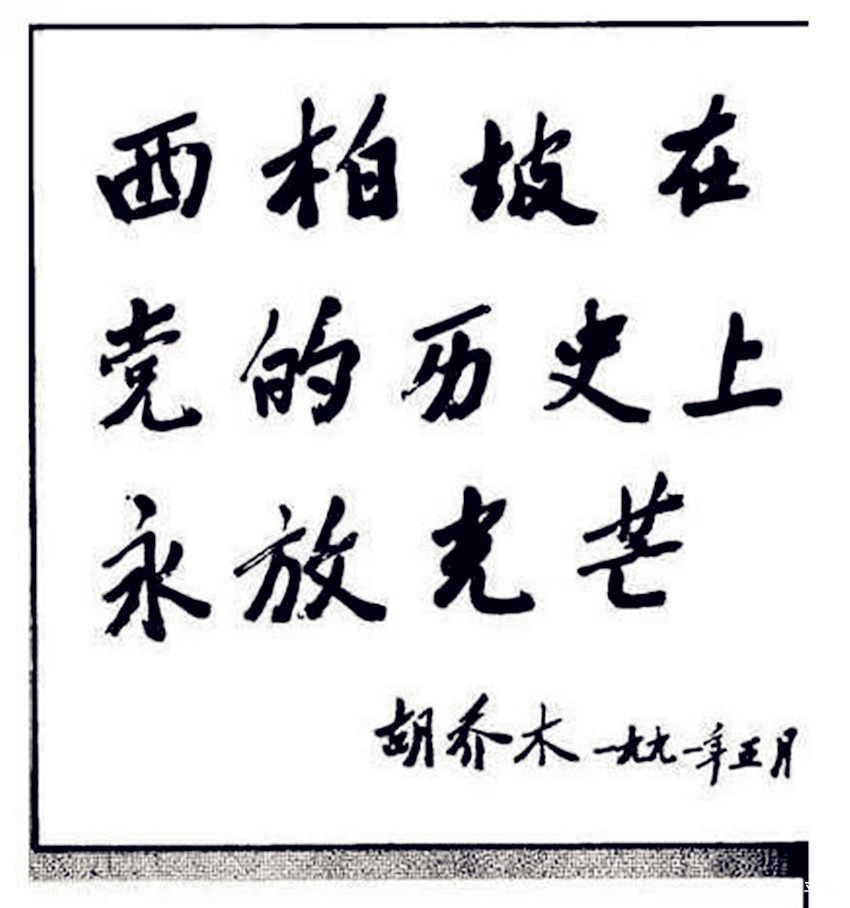 西柏坡在
党的历史上
永放光芒
胡乔木 一九九一年五月